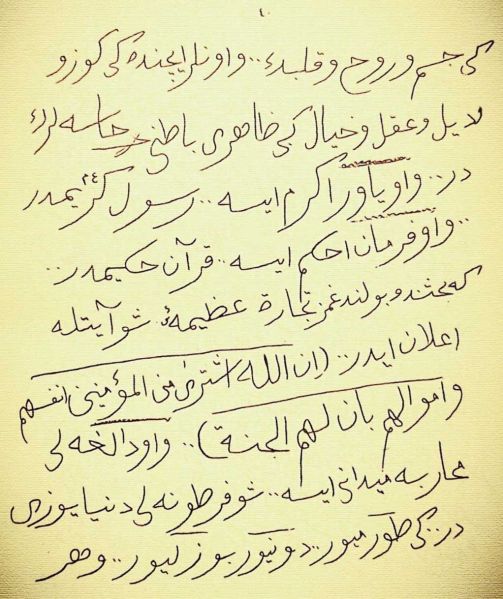 ٤٠
كى جسم وروح وقلبدر.. واونلر ايچنده كى كوز و
لايل وعقل وخيال كبى ظاهرى باطنى حاسه لرك
در.. واو ياور اكرم ايسه.. رسول كريمدر
.. واو فرمان احكم ايسه.. قرآن حكيمدر..
كه بحثنده بولندغمز تجارة عظيمه ئى شو آيتله
اعلان ايدر.. (ان الله اشترى من المؤمنين انفسهم
واموالهم بان لهم الجنة).. واو دالغه لى
محاربه ميدانى ايسه.. شو فرطونه لى دنيا يوزى
در.. كى طورميور.. دونيور بوزكيور.. وهر